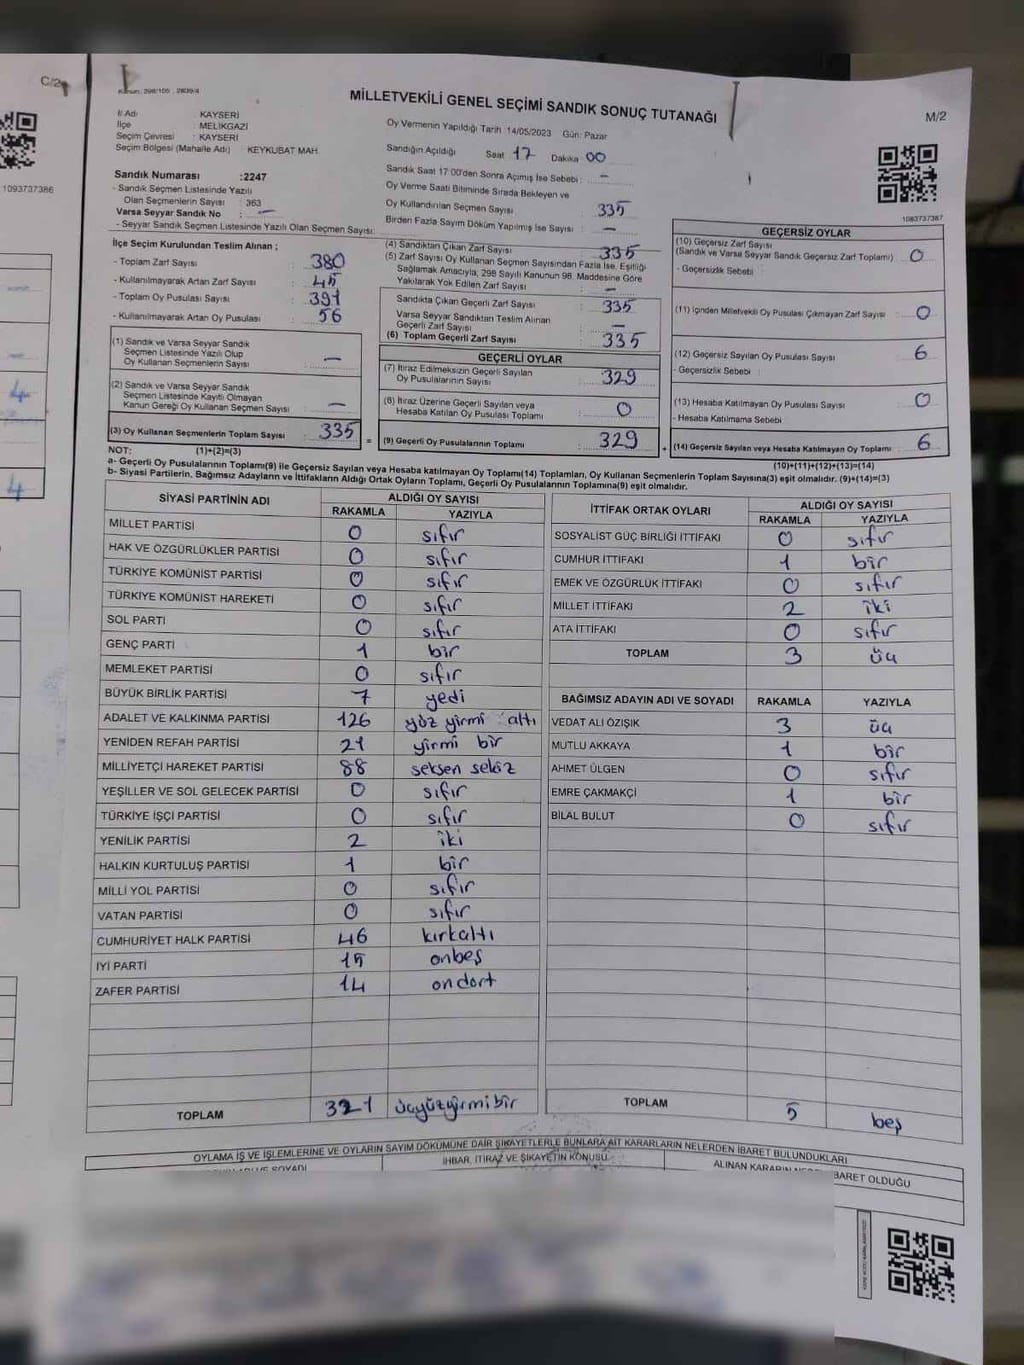 C/2
1093737386
Kanun: 298/105 ; 2839/4
MİLLETVEKİLİ GENEL SEÇİMİ SANDIK SONUÇ TUTANAĞI
M/2
İl Adı : KAYSERİ
İlçe : MELİKGAZİ
Seçim Çevresi : KAYSERİ
Seçim Bölgesi (Mahalle Adı) : KEYKUBAT MAH.
Oy Vermenin Yapıldığı Tarih : 14/05/2023 Gün: Pazar
Sandığın Açıldığı Saat 17 Dakika 00
Sandık Saat 17:00'den Sonra Açımış İse Sebebi : –
Oy Verme Saati Bitiminde Sırada Bekleyen ve
Oy Kullandırılan Seçmen Sayısı : 335
Birden Fazla Sayım Döküm Yapılmış İse Sayısı : –
1093737387
Sandık Numarası :2247
- Sandık Seçmen Listesinde Yazılı
Olan Seçmenlerin Sayısı : 363
Varsa Seyyar Sandık No : –
- Seyyar Sandık Seçmen Listesinde Yazılı Olan Seçmen Sayısı:
İlçe Seçim Kurulundan Teslim Alınan ;
- Toplam Zarf Sayısı : 380
- Kullanılmayarak Artan Zarf Sayısı : 45
- Toplam Oy Pusulası Sayısı : 391
- Kullanılmayarak Artan Oy Pusulası : 56
(1) Sandık ve Varsa Seyyar Sandık
Seçmen Listesinde Yazılı Olup
Oy Kullanan Seçmenlerin Sayısı : –
(2) Sandık ve Varsa Seyyar Sandık
Seçmen Listesinde Kayıtlı Olmayan
Kanun Gereği Oy Kullanan Seçmen Sayısı : –
(3) Oy Kullanan Seçmenlerin Toplam Sayısı : 335
(4) Sandıktan Çıkan Zarf Sayısı : 335
(5) Zarf Sayısı Oy Kullanan Seçmen Sayısından Fazla İse, Eşitliği
Sağlamak Amacıyla, 298 Sayılı Kanunun 98. Maddesine Göre
Yakılarak Yok Edilen Zarf Sayısı : –
Sandıkta Çıkan Geçerli Zarf Sayısı : 335
Varsa Seyyar Sandıktan Teslim Alınan
Geçerli Zarf Sayısı : –
(6) Toplam Geçerli Zarf Sayısı : 335
GEÇERLİ OYLAR
(7) İtiraz Edilmeksizin Geçerli Sayılan
Oy Pusulalarının Sayısı : 329
(8) İtiraz Üzerine Geçerli Sayılan veya
Hesaba Katılan Oy Pusulası Toplamı : 0
= (9) Geçerli Oy Pusulalarının Toplamı : 329
GEÇERSİZ OYLAR
(10) Geçersiz Zarf Sayısı
(Sandık ve Varsa Seyyar Sandık Geçersiz Zarf Toplamı) : 0
- Geçersizlik Sebebi :
(11) İçinden Milletvekili Oy Pusulası Çıkmayan Zarf Sayısı : 0
(12) Geçersiz Sayılan Oy Pusulası Sayısı : 6
- Geçersizlik Sebebi :
(13) Hesaba Katılmayan Oy Pusulası Sayısı : 0
- Hesaba Katılmama Sebebi
+ (14) Geçersiz Sayılan veya Hesaba Katılmayan Oy Toplamı : 6
NOT: (1)+(2)=(3)
(10)+(11)+(12)+(13)=(14)
a- Geçerli Oy Pusulalarının Toplamı(9) ile Geçersiz Sayılan veya Hesaba katılmayan Oy Toplamı(14) Toplamları, Oy Kullanan Seçmenlerin Toplam Sayısına(3) eşit olmalıdır. (9)+(14)=(3)
b- Siyasi Partilerin, Bağımsız Adayların ve İttifakların Aldığı Ortak Oyların Toplamı, Geçerli Oy Pusulalarının Toplamına(9) eşit olmalıdır.
SİYASİ PARTİNİN ADI ALDIĞI OY SAYISI
RAKAMLA YAZIYLA
MİLLET PARTİSİ 0 sıfır
HAK VE ÖZGÜRLÜKLER PARTİSİ 0 sıfır
TÜRKİYE KOMÜNİST PARTİSİ 0 sıfır
TÜRKİYE KOMÜNİST HAREKETİ 0 sıfır
SOL PARTİ 0 sıfır
GENÇ PARTİ 1 bir
MEMLEKET PARTİSİ 0 sıfır
BÜYÜK BİRLİK PARTİSİ 7 yedi
ADALET VE KALKINMA PARTİSİ 126 yüz yirmi altı
YENİDEN REFAH PARTİSİ 21 yirmi bir
MİLLİYETÇİ HAREKET PARTİSİ 88 seksen sekiz
YEŞİLLER VE SOL GELECEK PARTİSİ 0 sıfır
TÜRKİYE İŞÇİ PARTİSİ 0 sıfır
YENİLİK PARTİSİ 2 iki
HALKIN KURTULUŞ PARTİSİ 1 bir
MİLLİ YOL PARTİSİ 0 sıfır
VATAN PARTİSİ 0 sıfır
CUMHURİYET HALK PARTİSİ 46 kırkaltı
İYİ PARTİ 15 onbeş
ZAFER PARTİSİ 14 ondört
TOPLAM 321 üçyüzyirmibir
İTTİFAK ORTAK OYLARI ALDIĞI OY SAYISI
RAKAMLA YAZIYLA
SOSYALİST GÜÇ BİRLİĞİ İTTİFAKI 0 sıfır
CUMHUR İTTİFAKI 1 bir
EMEK VE ÖZGÜRLÜK İTTİFAKI 0 sıfır
MİLLET İTTİFAKI 2 iki
ATA İTTİFAKI 0 sıfır
TOPLAM 3 üç
BAĞIMSIZ ADAYIN ADI VE SOYADI RAKAMLA YAZIYLA
VEDAT ALİ ÖZIŞIK 3 üç
MUTLU AKKAYA 1 bir
AHMET ÜLGEN 0 sıfır
EMRE ÇAKMAKÇİ 1 bir
BİLAL BULUT 0 sıfır
TOPLAM 5 beş
OYLAMA İŞ VE İŞLEMLERİNE VE OYLARIN SAYIM DÖKÜMÜNE DAİR ŞİKAYETLERLE BUNLARA AİT KARARLARIN NELERDEN İBARET BULUNDUKLARI
VE SOYADI İHBAR, İTİRAZ VE ŞİKAYETİN KONUSU ALINAN KARARIN BARET OLDUĞU